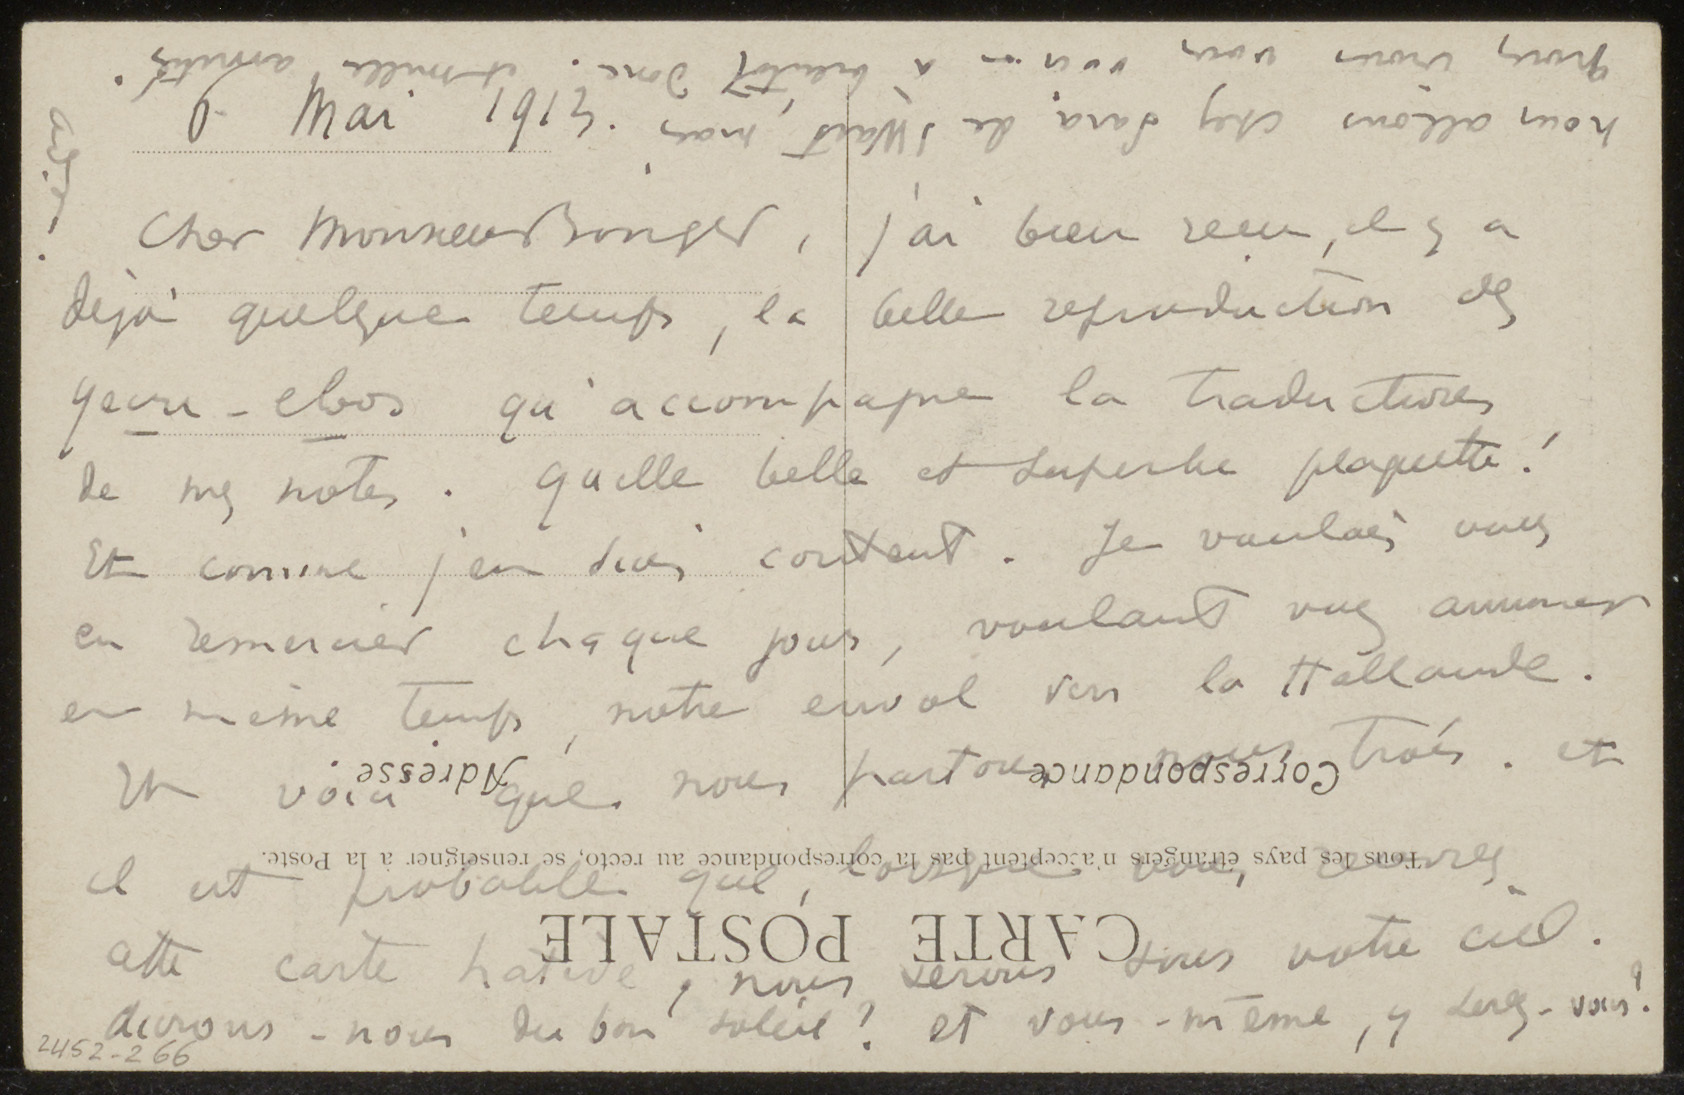 6. Mai 1913.
Cher Monsieur Bonger, j'ai bien recu, il y a
déjà quelque temps, la belle reproduction des
qui accompagne la traduction
de mes notes. Quelle belle et superbe plaquette!
Et comme j'en suis content. Je voulais vous
en remercier chaque jour, voulant vous annoncer
en même temps, notre envol vers la Hollande.
Et voici que nous partons nous trois. et
il est probable que, lorsque vous recevrez
cette carte hative, nous serons sous votre ciel.
Aurons-nous du bon soleil? et vous-même, y serez-vous?
nous allons chez Sara de Swart, mais
nous irons vous voir. à bientôt donc. et mille amitiés.
CARTE POSTALE
Tous les pays étrangers n'acceptent pas la correspondance au recto, se renseigner à la Poste.
Correspondance
Adresse
2452-266